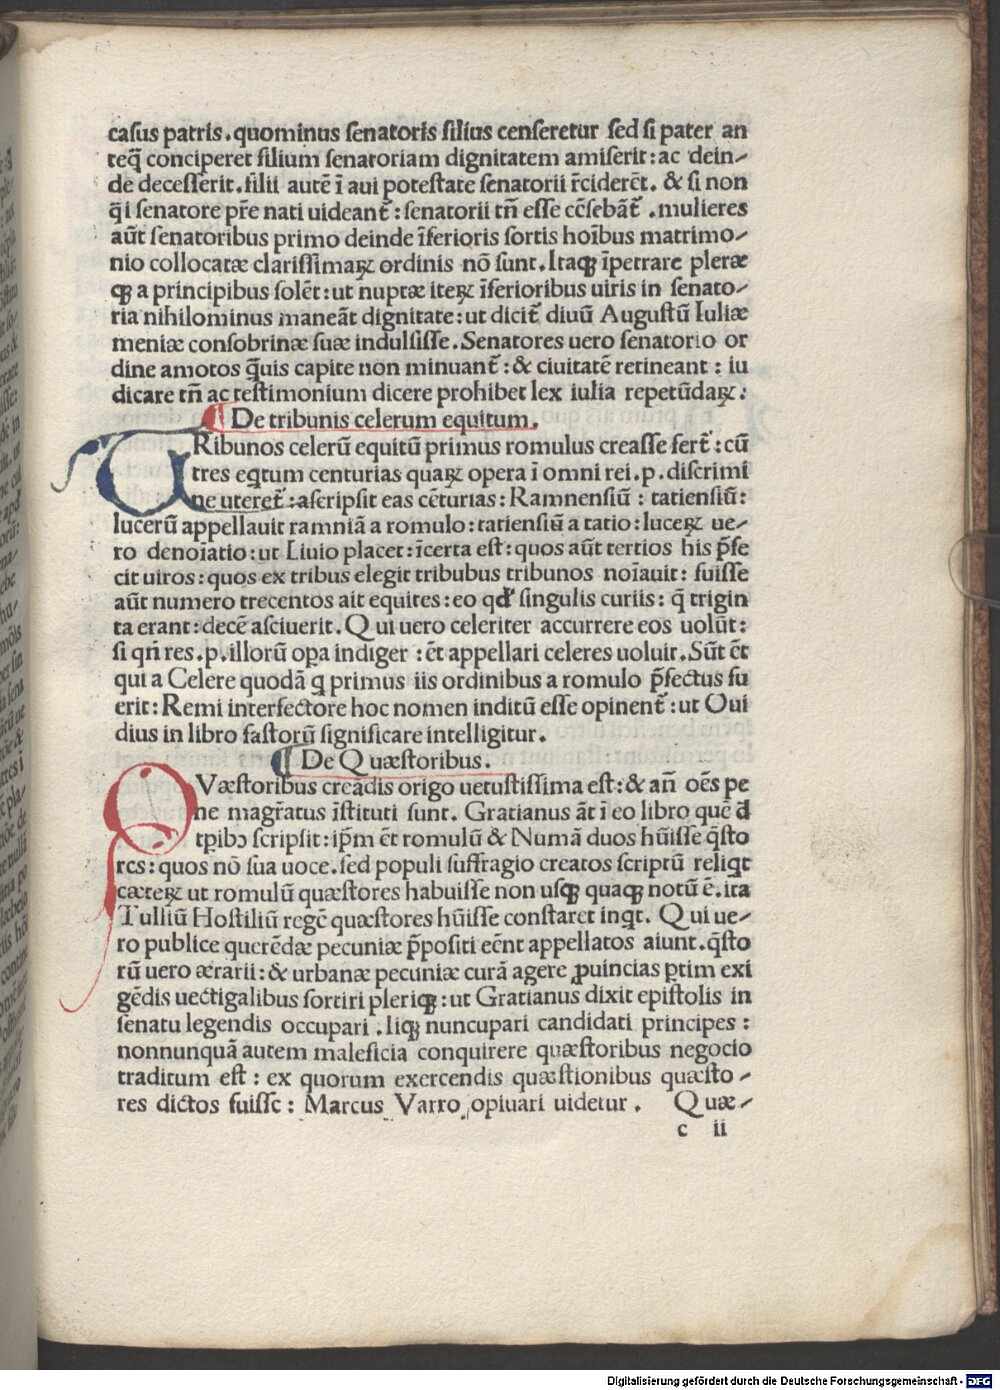 casus patris.quominus senatoris filius censeretur sed si pater an
teq̃ conciperet filium senatoriam dignitatem amiserit:ac dein-
de decesserit.filii autẽ ĩ aui potestate senatorii r̃ciderẽt. & si non
q̃ i senatore pr̃e nati uideant̃:senatorii tñ esse cẽsebãt̃.mulieres
aũt senatoribus primo deinde ĩferioris sortis hoĩbus matrimo-
nio collocatæ clarissimaꝝ ordinis nõ sunt.Itaqꝫ ĩpetrare pleræ
qꝫ a principibus solẽt:ut nuptæ iteꝝ ĩferioribus uiris in senato-
ria nihilominus maneãt dignitate:ut dicit̃ diuũ Augustũ Iuliæ
meniæ consobrinæ suæ indulsisse.Senatores uero senatorio or
dine amotos q̃uis capite non minuant̃:& ciuitatẽ retineant: iu
dicare tñ ac testimonium dicere prohibet lex iulia repetũdaꝝ:
De tribunis celerum equitum.
TRibunos celerũ equitũ primus romulus creasse fert̃:cũ
tres eqtum centurias quaꝝ opera ĩ omni rei.p.discrimi
ne uteret̃:ascripsit eas cẽturias:Ramnensiũ: tatiensiũ:
lucerũ appellauit ramniã a romulo:tatiensiũ a tatio:luceꝝ ue-
ro denoĩatio:ut Liuio placet:ĩcerta est:quos aũt tertios his p̃fe
cit uiros:quos ex tribus elegit tribubus tribunos noĩauit: fuisse
aũt numero trecentos ait equites:eo qđ singulis curiis: q̃ trigin
ta erant:decẽ asciuerit.Qui uero celeriter accurrere eos uolũt:
si qñ res.p.illorũ opa indiger:ẽt appellari celeres uoluit.Sũt ẽt
qui a Celere quodã q primus iis ordinibus a romulo p̃fectus fu
erit:Remi interfectore hoc nomen inditũ esse opinent̃:ut Oui
dius in libro fastorũ significare intelligitur.
De Quæstoribus.
QVæstoribus creãdis origo uetustissima est:& añ oẽs pe
ne magr̃atus ĩstituti sunt. Gratianus ãt ĩ eo libro quẽ đ
tpibꝰ scripsit:ip̃m ẽt romulũ & Numã duos hũisse q̃sto
res:quos nõ sua uoce.sed populi suffragio creatos scriptũ reliqt
cæteꝝ ut romulũ quæstores habuisse non usqꝫ quaqꝫ notũ ẽ.ita
Tulliũ Hostiliũ regẽ quæstores hũisse constaret inqt. Qui ue-
ro publice querẽdæ pecuniæ p̃positi eẽnt appellatos aiunt.q̃sto
rũ uero ærarii:& urbanæ pecuniæ curã agere ꝓuincias ptim exi
gẽdis uectigalibus sortiri pleriqꝫ:ut Gratianus dixit epistolis in
senatu legendis occupari.liqꝫ nuncupari candidati principes:
nonnunquã autem maleficia conquirere quæstoribus negocio
traditum est: ex quorum exercendis quæstionibus quæsto-
res dictos fuisse: Marcus Varro opiuari uidetur. Quæ-
c ii
Digitalisierung gefördert durch die Deutsche Forschungsgemeinschaft - DFG